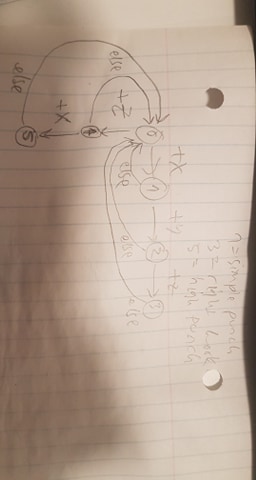 1 = simple punch
3 = right hook
5 = high punch
+X +Y +Z
0 1 2 3
else else else
else +Z
4
+X
else 5